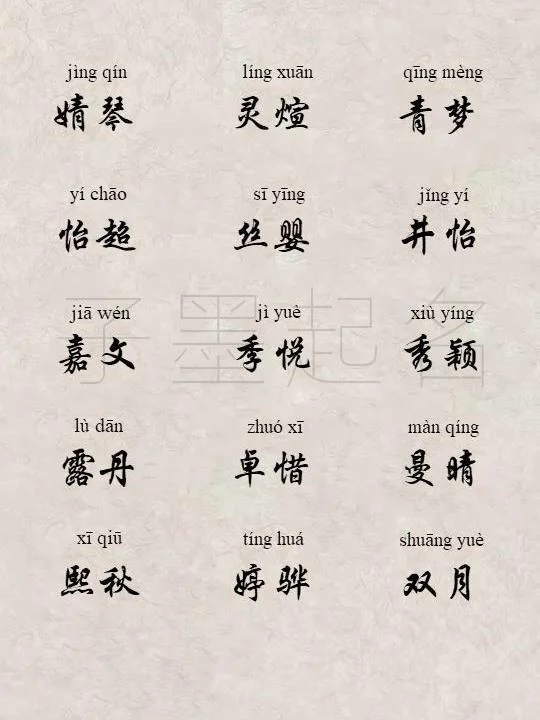 jìng qín líng xuān qīng mèng
婧琴 灵煊 青梦
yí chāo sī yīng jǐng yí
怡超 丝婴 井怡
子墨起名
jiā wén jì yuè xiù yíng
嘉文 季悦 秀颖
lù dān zhuó xī màn qíng
露丹 卓惜 曼晴
xī qiū tíng huá shuāng yuè
熙秋 婷骅 双月